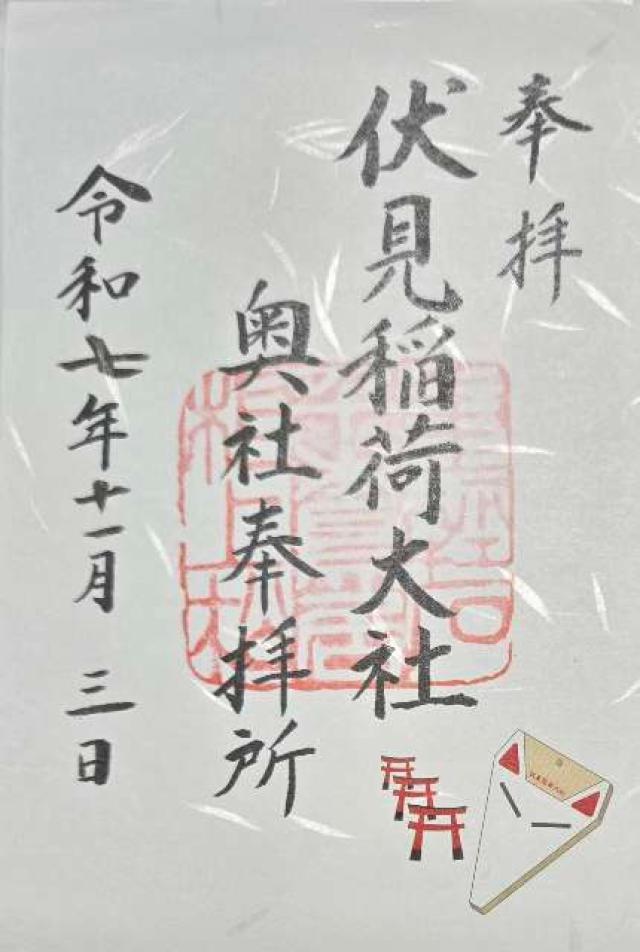 奉拝
伏見稲荷大社
奥社奉拝所
令和七年十一月三日